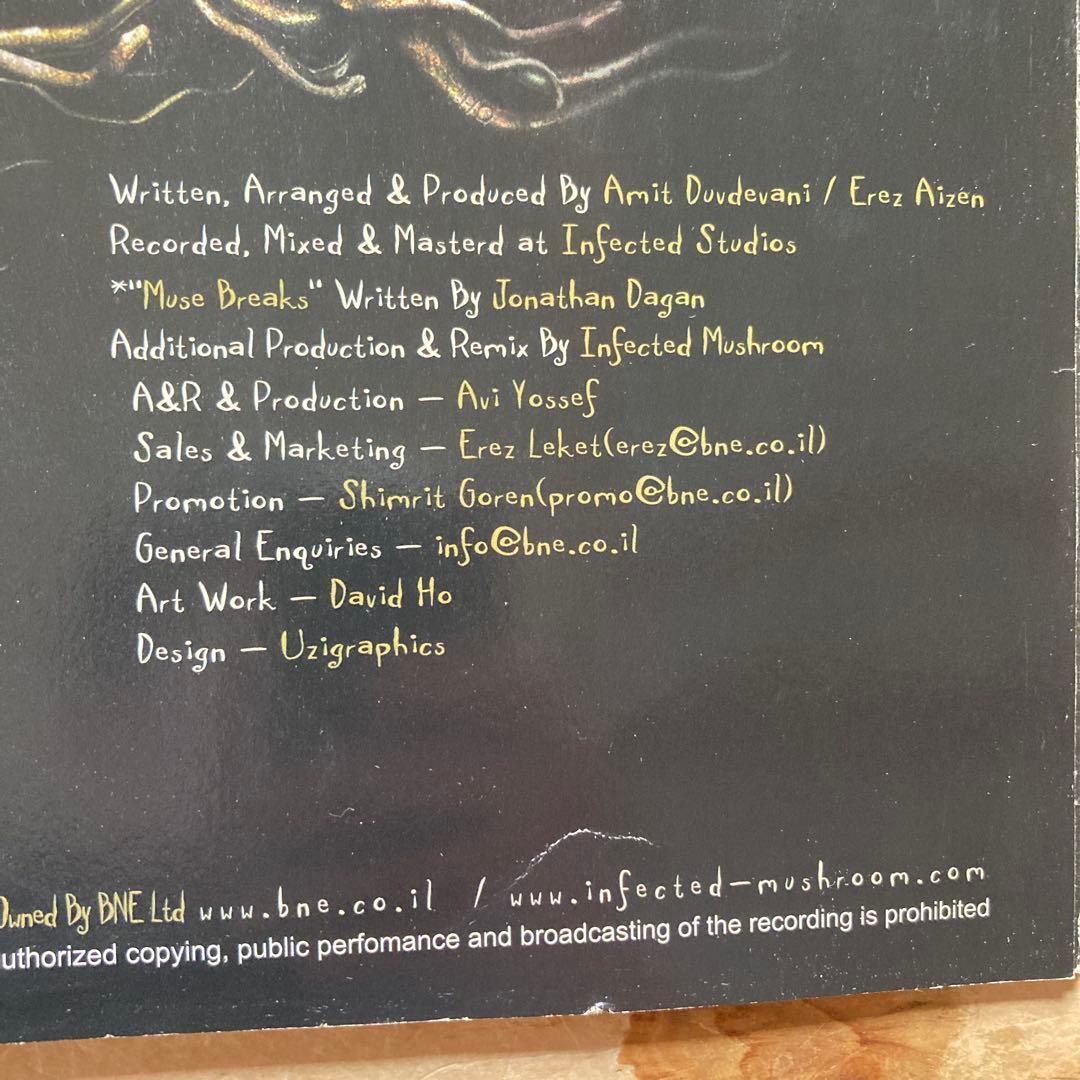 Written, Arranged & Produced By Amit Duvdevani / Erez Aizen
Recorded, Mixed & Masterd at Infected Studios
*"Muse Breaks" Written By Jonathan Dagan
Additional Production & Remix By Infected Mushroom
A&R & Production — Avi Yossef
Sales & Marketing — Erez Leket(erez@bne.co.il)
Promotion — Shimrit Goren(promo@bne.co.il)
General Enquiries — info@bne.co.il
Art Work — David Ho
Design — Uzigraphics
Owned By BNE Ltd www.bne.co.il / www.infected-mushroom.com
uthorized copying, public perfomance and broadcasting of the recording is prohibited